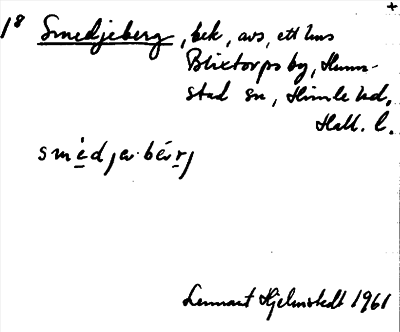 18 Smedjeberg, bek, avs, ett hus
Blixtorps by, Hunne-
stad sn, Himle hd,
Hall. l.
smèdjaˑbæ̀rj
Lennart Hjelmstedt 1961